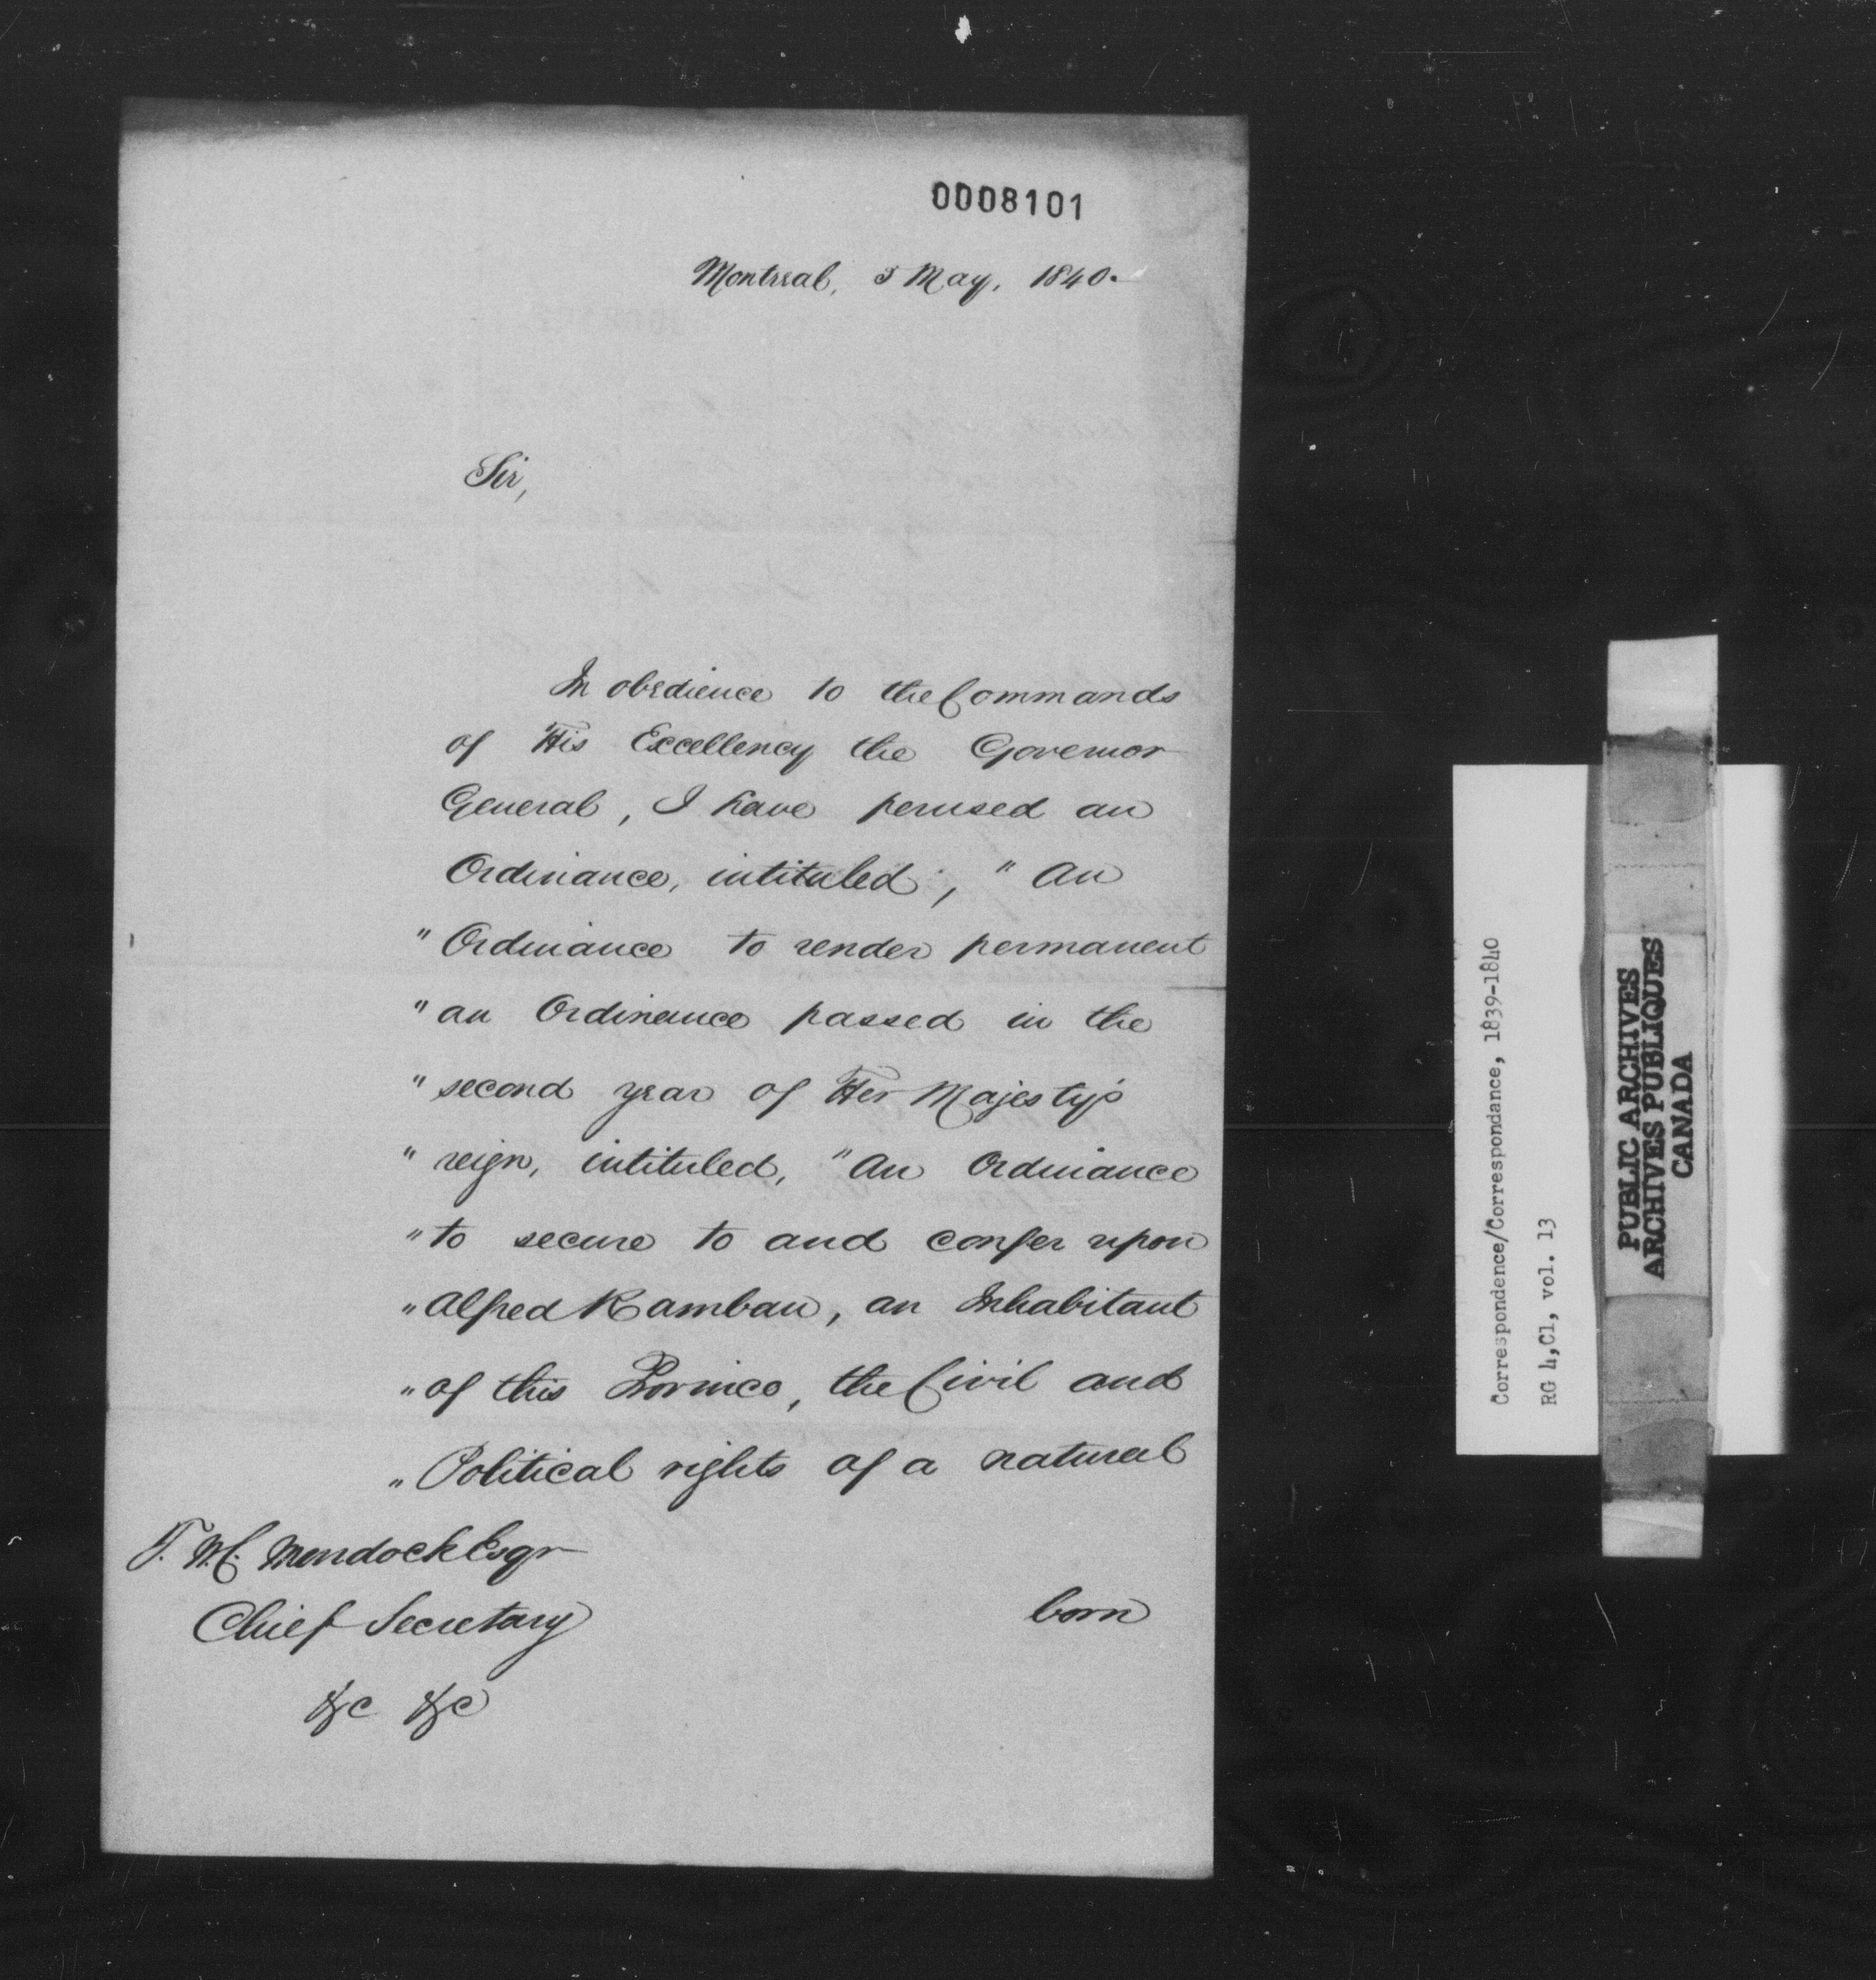 0008101
Montreal, 5 May, 1840.
Sir,
In obedience to the Commands
of His Excellency the Governor
General, I have perused an
Ordinance, intituled, " An
" Ordinance to render permanent
" an Ordinance passed in the
" second year of Her Majesty's
" reign, intituled, " An Ordinance
" to secure to and confer upon
" Alfred Rambau, an Inhabitant
" of this Province, the Civil and
" Political rights of a natural
born
T. W. C. Murdock Esqr
Chief Secretary
&c &c
Correspondence/Correspondance, 1839-1840
RG 4,C1, vol. 13
PUBLIC ARCHIVES
ARCHIVES PUBLIQUES
CANADA